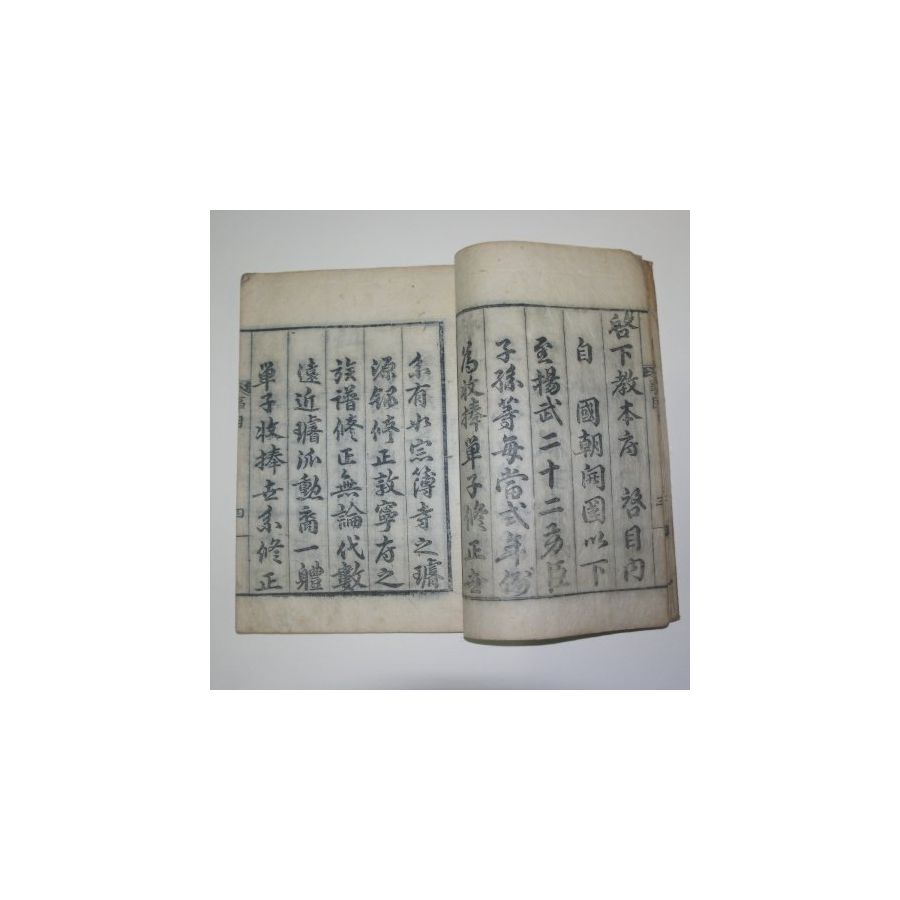 啓下教本府 啓目內
自 國朝開國以下
至揚武二十二功臣
子孫等每當式年例
爲收捧單子修正世
系有如宗簿寺之璿
源錄修正敦寧府之
族譜修正無論代數
遠近璿派勳裔一體
單子收捧世系修正